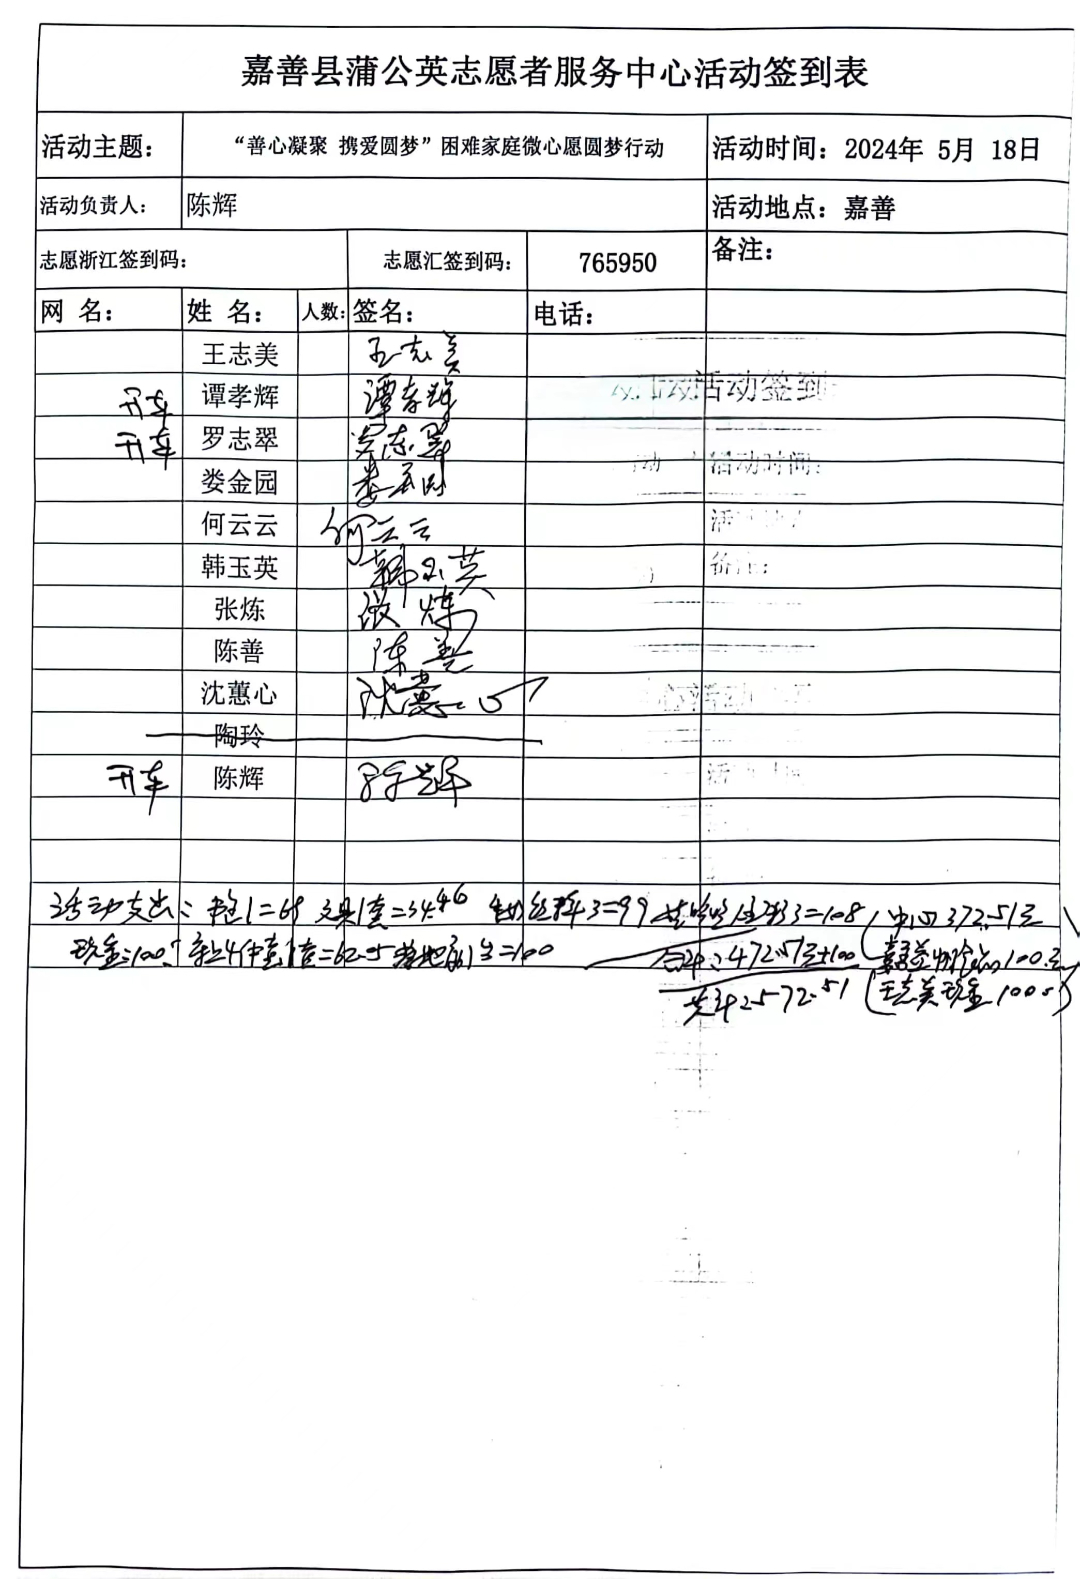 嘉善县蒲公英志愿者服务中心活动签到表
活动主题： “善心凝聚 携爱圆梦”困难家庭微心愿圆梦行动 活动时间：2024年 5月 18日
活动负责人： 陈辉 活动地点：嘉善
志愿浙江签到码： 志愿汇签到码： 765950 备注：
网 名： 姓 名： 人数： 签名： 电话：
王志美 王志美
开车 谭孝辉 谭孝辉
开车 罗志翠 罗志翠
娄金园 娄金园
何云云 何云云
韩玉英 韩玉英
张炼 张炼
陈善 陈善
沈蕙心 沈蕙心
陶玲
开车 陈辉 陈辉
活动支出： 1=68 文具1套=34.46 3=99 3=108 中心372.51元
现金=100 4件套1套=62.05 =100 合计：472.51元+100 100元
共计：572.51 王志美现金100